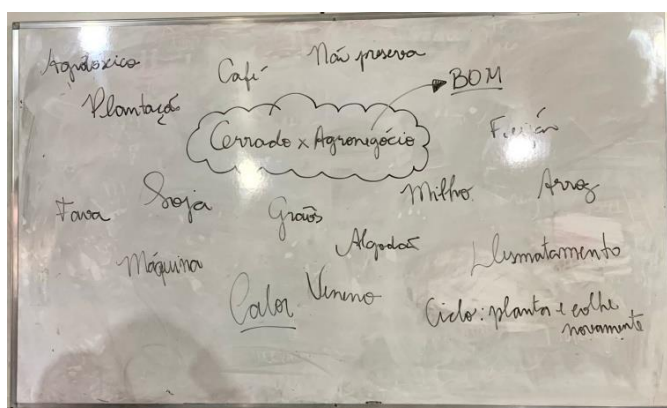 Agrotóxico
Café
Não preserva
BOM
Plantação
Cerrado x Agronegócio
Feijão
Milho
Arroz
Fava
Soja
Grãos
Algodão
Máquina
Desmatamento
Calor
Veneno
Ciclo: planta e colhe
novamente